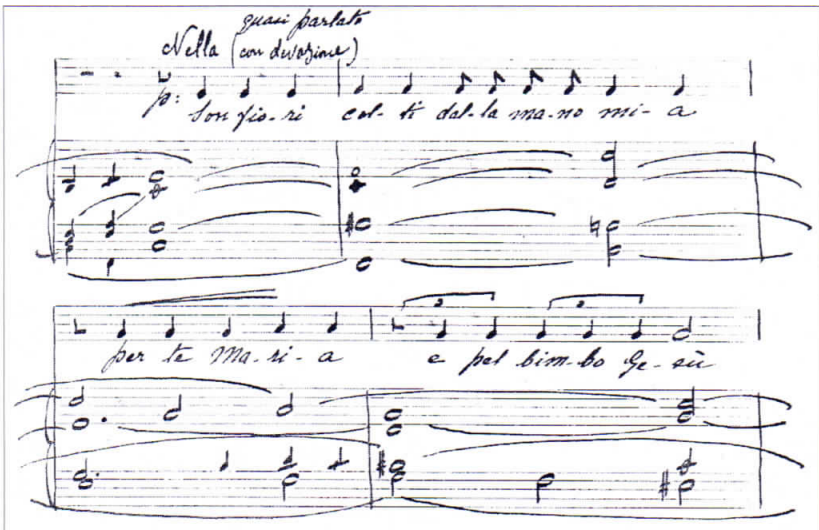 quasi parlato
Nella (con devozione)
p: Son fio-ri col-ti dal-la ma-no mi-a
per te Ma-ri-a e pel bim-bo Ge-sù